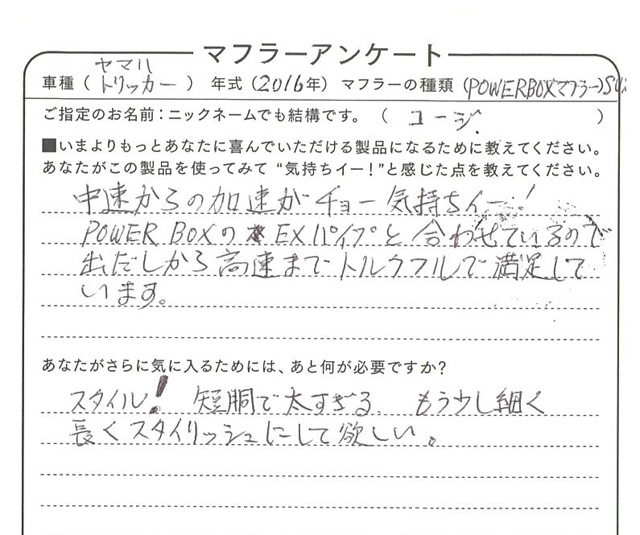 マフラーアンケート
ヤマハ
車種（トリッカー） 年式（2016年） マフラーの種類（POWERBOXマフラー）SUS
ご指定のお名前：ニックネームでも結構です。（コージ）
■いまよりもっとあなたに喜んでいただける製品になるために教えてください。
あなたがこの製品を使ってみて“気持ちイー！”と感じた点を教えてください。
中速からの加速がチョー気持ちイー！
POWER BOXのEXパイプと合わせているので
出だしから高速までトルクフルで満足して
います。
あなたがさらに気に入るためには、あと何が必要ですか？
スタイル！ 短胴で太すぎる。もう少し細く
長くスタイリッシュにして欲しい。